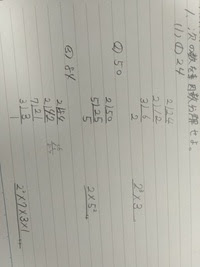 1. 次の数を素因数分解せよ。
(1) ① 24
2)24
2)12
3)6
2
② 50
2)50
5)25
5
2×5²
③ 84
2)84
2)42
7)21
3)3
1
2²×7×3×1